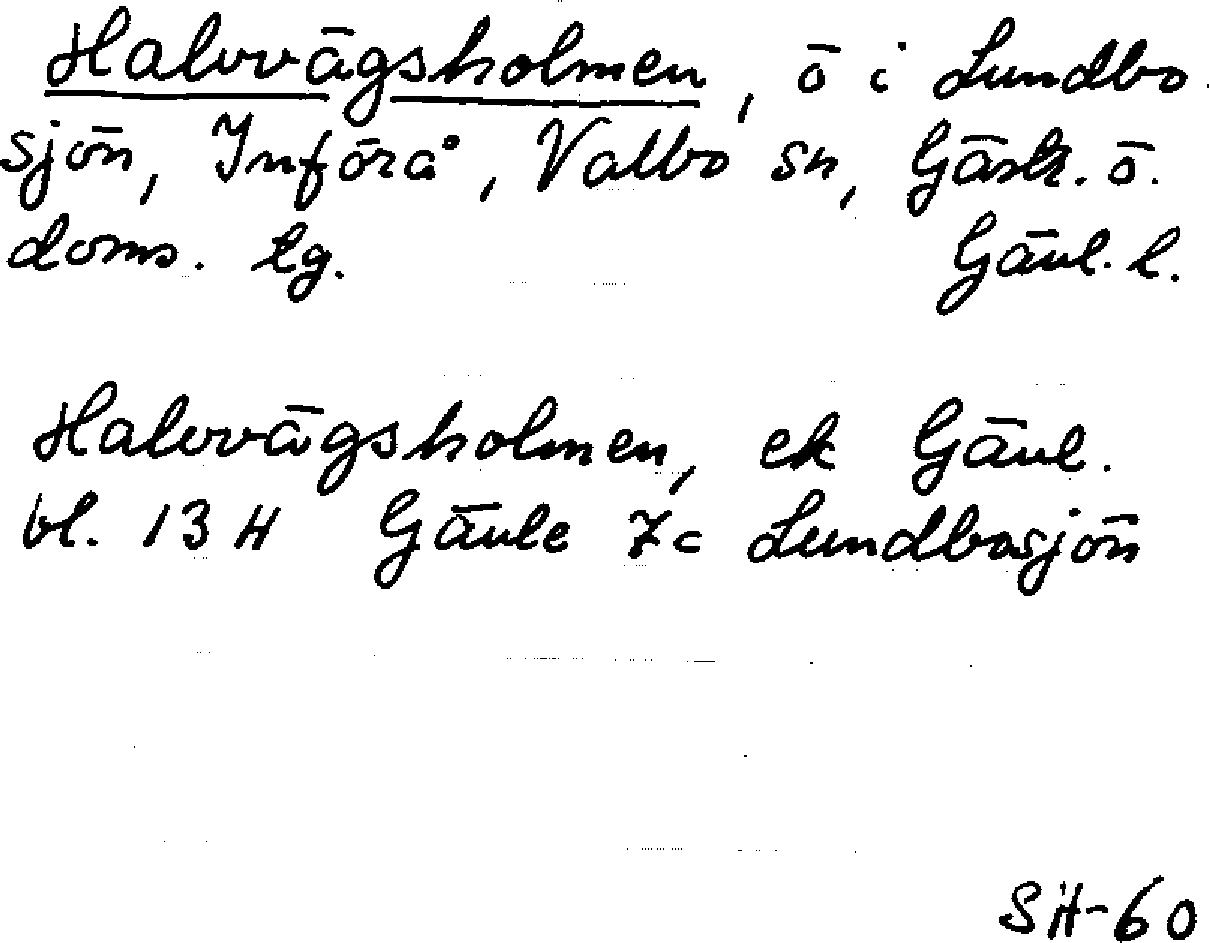 Halvvägsholmen, ö i Lundbo
sjön, Införå, Valbo sn, Gästr. ö.
doms. tg. Gävl. l.
Halvvägsholmen, ek Gävl.
bl. 13 H Gävle 7c Lundbosjön
SH-60